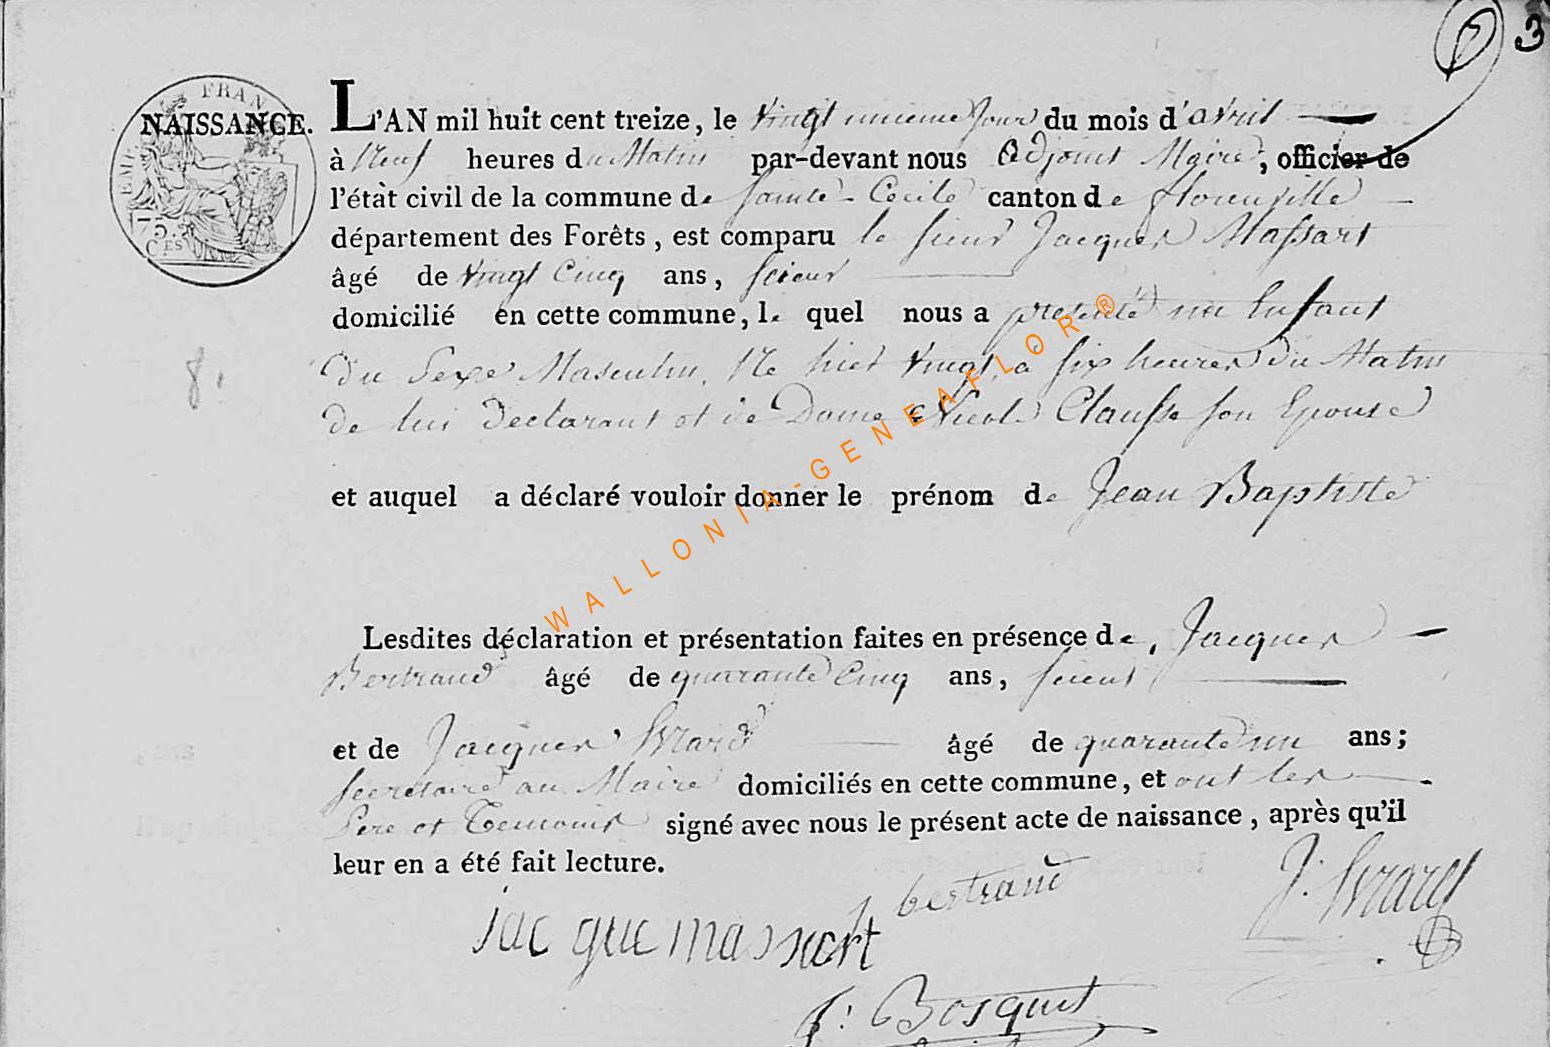 3
EMP. FRAN
75 CES
NAISSANCE. L'AN mil huit cent treize, le vingt unieme Jour du mois d'avril
à Neuf heures du Matin par-devant nous Adjoint Maire, officier de
l'état civil de la commune de Sainte-Cecile canton de florenville
département des Forêts, est comparu le sieur Jacques Massart
âgé de vingt Cinq ans, scieur
domicilié en cette commune, le quel nous a présenté un Enfant
8.
Du Sexe Masculin, Né hier vingt, à six heures du Matin
de lui declarant et de Dame Nicole Clausse son Epouse
et auquel a déclaré vouloir donner le prénom de Jean Baptiste
WALLONIA-GENEAFLOR®
Lesdites déclaration et présentation faites en présence de, Jacques
Bertrand âgé de quarante Cinq ans, scieur
et de Jacques Evrard âgé de quarante un ans;
secretaire au Maire domiciliés en cette commune, et ont les
Pere et Temoins signé avec nous le présent acte de naissance, après qu'il
leur en a été fait lecture.
bertrand
J. Evrard
jacque massart
Bosquet